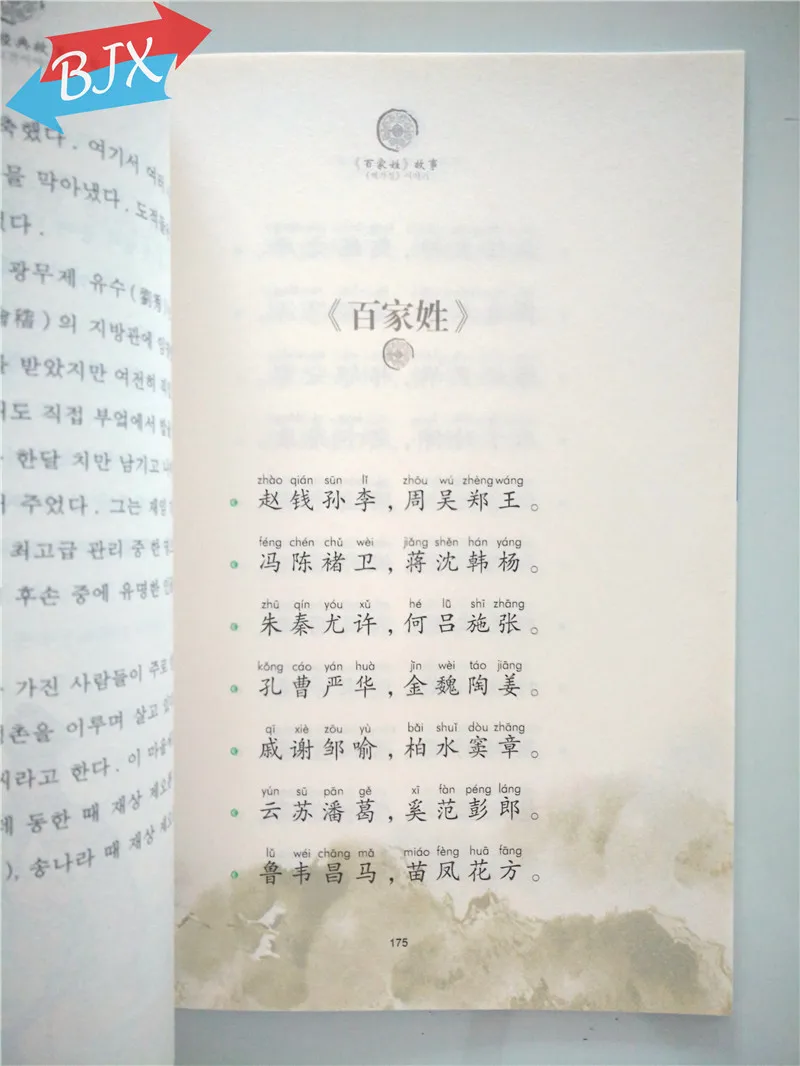 BJX
축했다. 여기서 여러
를 막아냈다. 도적들
렸다.
광무제 유수(劉秀)
會稽)의 지방관에
받았지만 여전히
서도 직접 부엌에서
한달 치만 남기고
주었다. 그는 재임
최고급 관리 중 한
후손 중에 유명한
가진 사람들이 주로
성촌을 이루며 살고
씨라고 한다. 이 마을
동한 때 재상 제오
), 송나라 때 재상
《百家姓》故事
《백가성》이야기
《百家姓》
zhào qián sūn lǐ zhōu wú zhèng wáng
赵钱孙李，周吴郑王。
féng chén chǔ wèi jiǎng shěn hán yáng
冯陈褚卫，蒋沈韩杨。
zhū qín yóu xǔ hé lǚ shī zhāng
朱秦尤许，何吕施张。
kǒng cáo yán huà jīn wèi táo jiāng
孔曹严华，金魏陶姜。
qī xiè zōu yù bǎi shuǐ dòu zhāng
戚谢邹喻，柏水窦章。
yún sū pān gě xī fàn péng láng
云苏潘葛，奚范彭郎。
lǔ wéi chāng mǎ miáo fèng huā fāng
鲁韦昌马，苗凤花方。
175